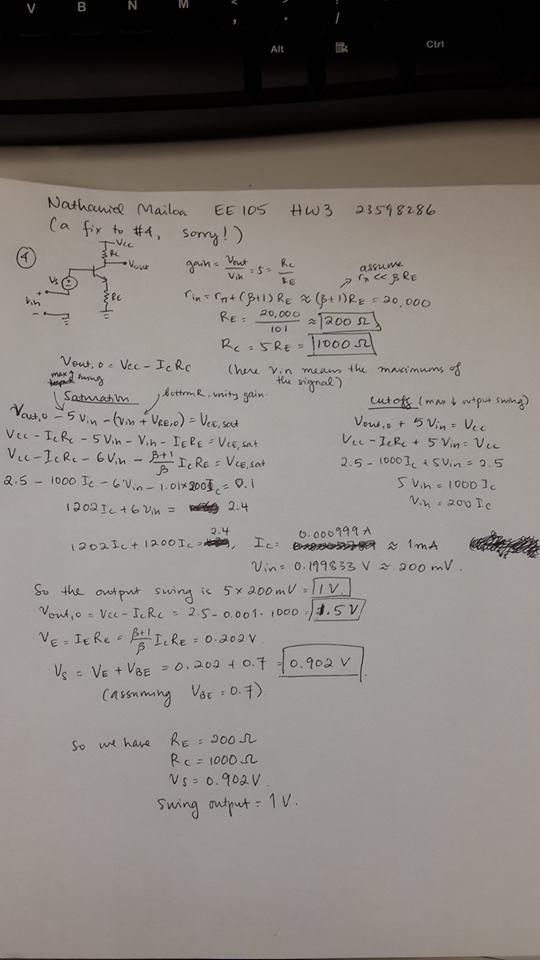 V B N M < > ?
, . /
Alt Ctrl
Nathaniel Mailoa EE 105 HW3 23598286
(a fix to #4, sorry!)
④
Vcc
Rc
Vout
Vs
Vin
+
-
RE
gain = Vout/Vin = 5 = Rc/RE
assume rπ << βRE
rin = rπ + (β+1)RE ≈ (β+1)RE = 20,000
RE = 20,000/101 ≈ 200 Ω
Rc = 5RE = 1000 Ω
Vout,0 = Vcc - IcRc (here vin means the maximums of the signal)
max swing
Saturation
bottom R, unity gain.
Vout,0 - 5Vin - (Vin + VRE,0) = VCE,sat
Vcc - IcRc - 5Vin - Vin - IERE = VCE,sat
Vcc - IcRc - 6Vin - β+1/β IcRE = VCE,sat
2.5 - 1000 Ic - 6Vin - 1.01×200Ic = 0.1
1202Ic + 6Vin = 2.4
1202Ic + 1200Ic = 2.4, Ic = 0.000999 A ≈ 1mA
Vin = 0.199833 V ≈ 200 mV.
cutoff (max ↓ output swing)
Vout,0 + 5Vin = Vcc
Vcc - IcRc + 5Vin = Vcc
2.5 - 1000Ic + 5Vin = 2.5
5Vin = 1000Ic
Vin = 200Ic
So the output swing is 5 × 200mV = 1V.
Vout,0 = Vcc - IcRc = 2.5 - 0.001·1000 = 1.5V
VE = IERE = β+1/β IcRE = 0.202V.
Vs = VE + VBE = 0.202 + 0.7 = 0.902 V
(assuming VBE = 0.7)
So we have RE = 200 Ω
Rc = 1000 Ω
Vs = 0.902V.
Swing output = 1V.